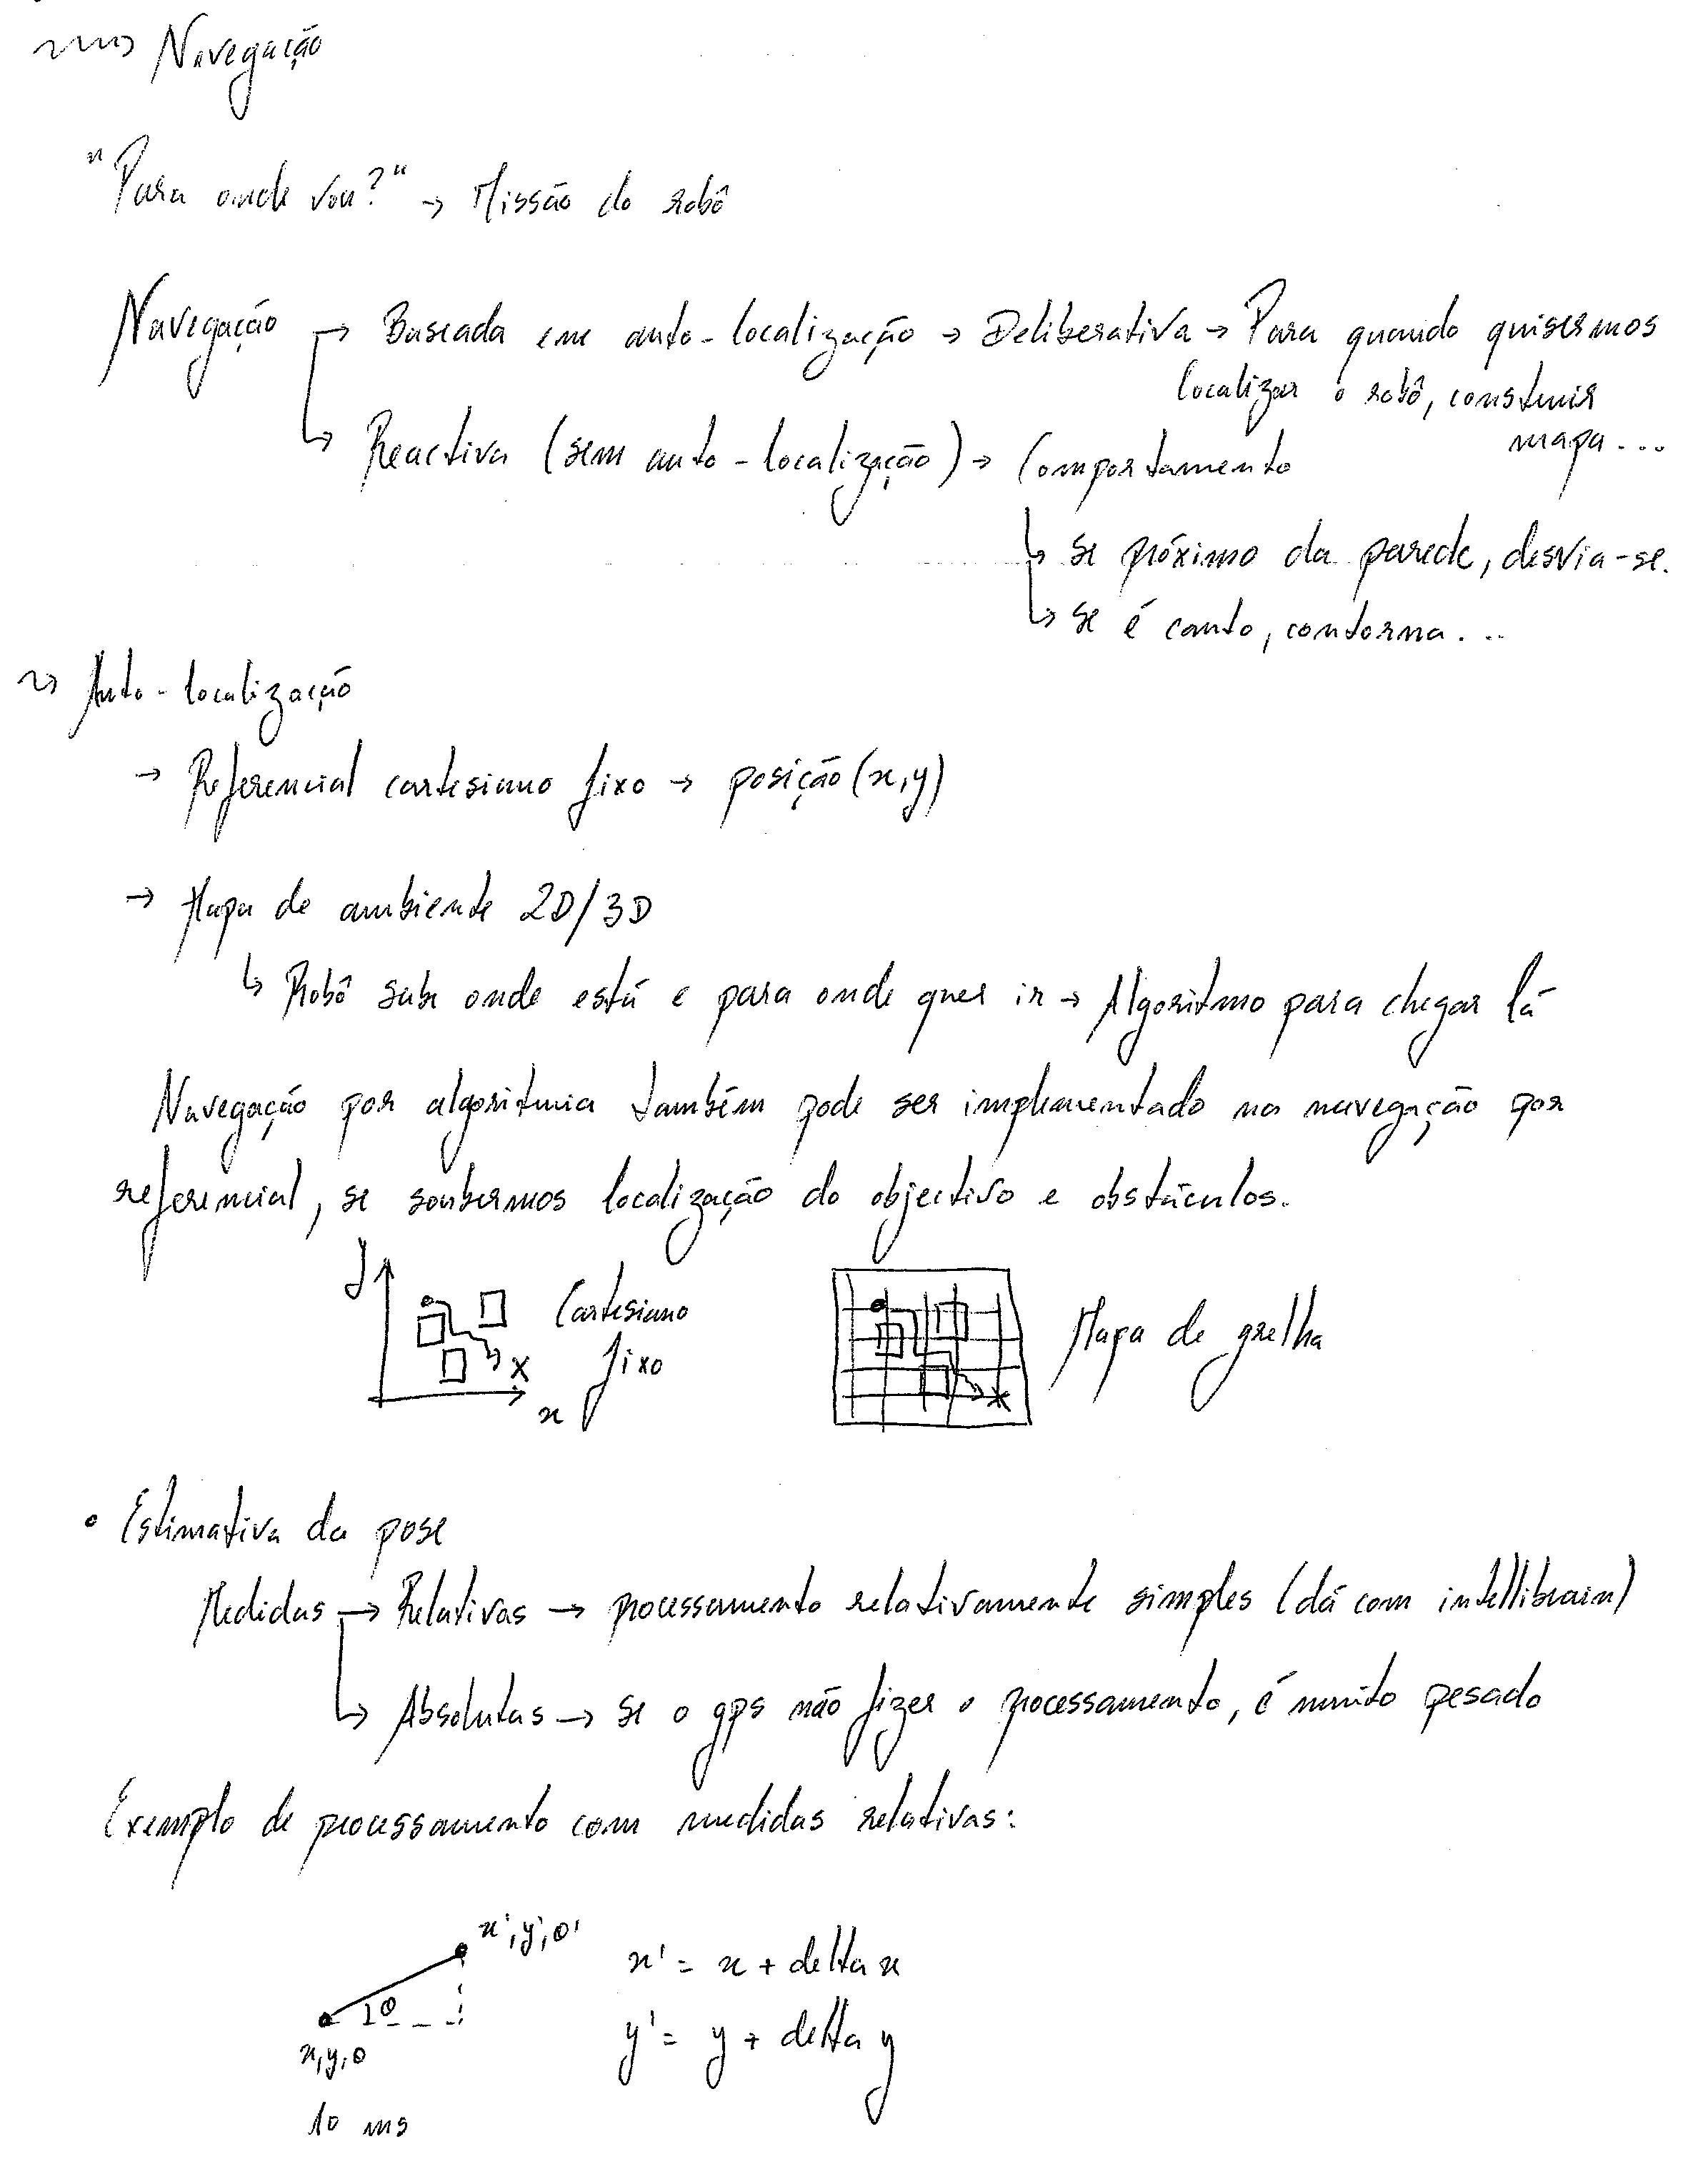 ~~> Navegação
"Para onde vou?" → Missão do robô
Navegação → Baseada em auto-localização → Deliberativa → Para quando quisermos
localizar o robô, construir
mapa...
↳ Reactiva (sem auto-localização) → Comportamento
↳ se próximo da parede, desvia-se.
↳ se é canto, contorna...
~> Auto-localização
→ Referencial cartesiano fixo → posição (x,y)
→ Mapa de ambiente 2D/3D
↳ Robô sabe onde está e para onde quer ir → Algoritmo para chegar lá
Navegação por algoritmia também pode ser implementado na navegação por
referencial, se soubermos localização do objectivo e obstáculos.
y
Cartesiano
fixo
x
x
Mapa de grelha
x
• Estimativa da pose
Medidas → Relativas → processamento relativamente simples (dá com intellibrain)
↳ Absolutas → se o gps não fizer o processamento, é muito pesado
Exemplo de processamento com medidas relativas:
x',y',θ'
x' = x + delta x
θ
x,y,θ
y' = y + delta y
10 ms